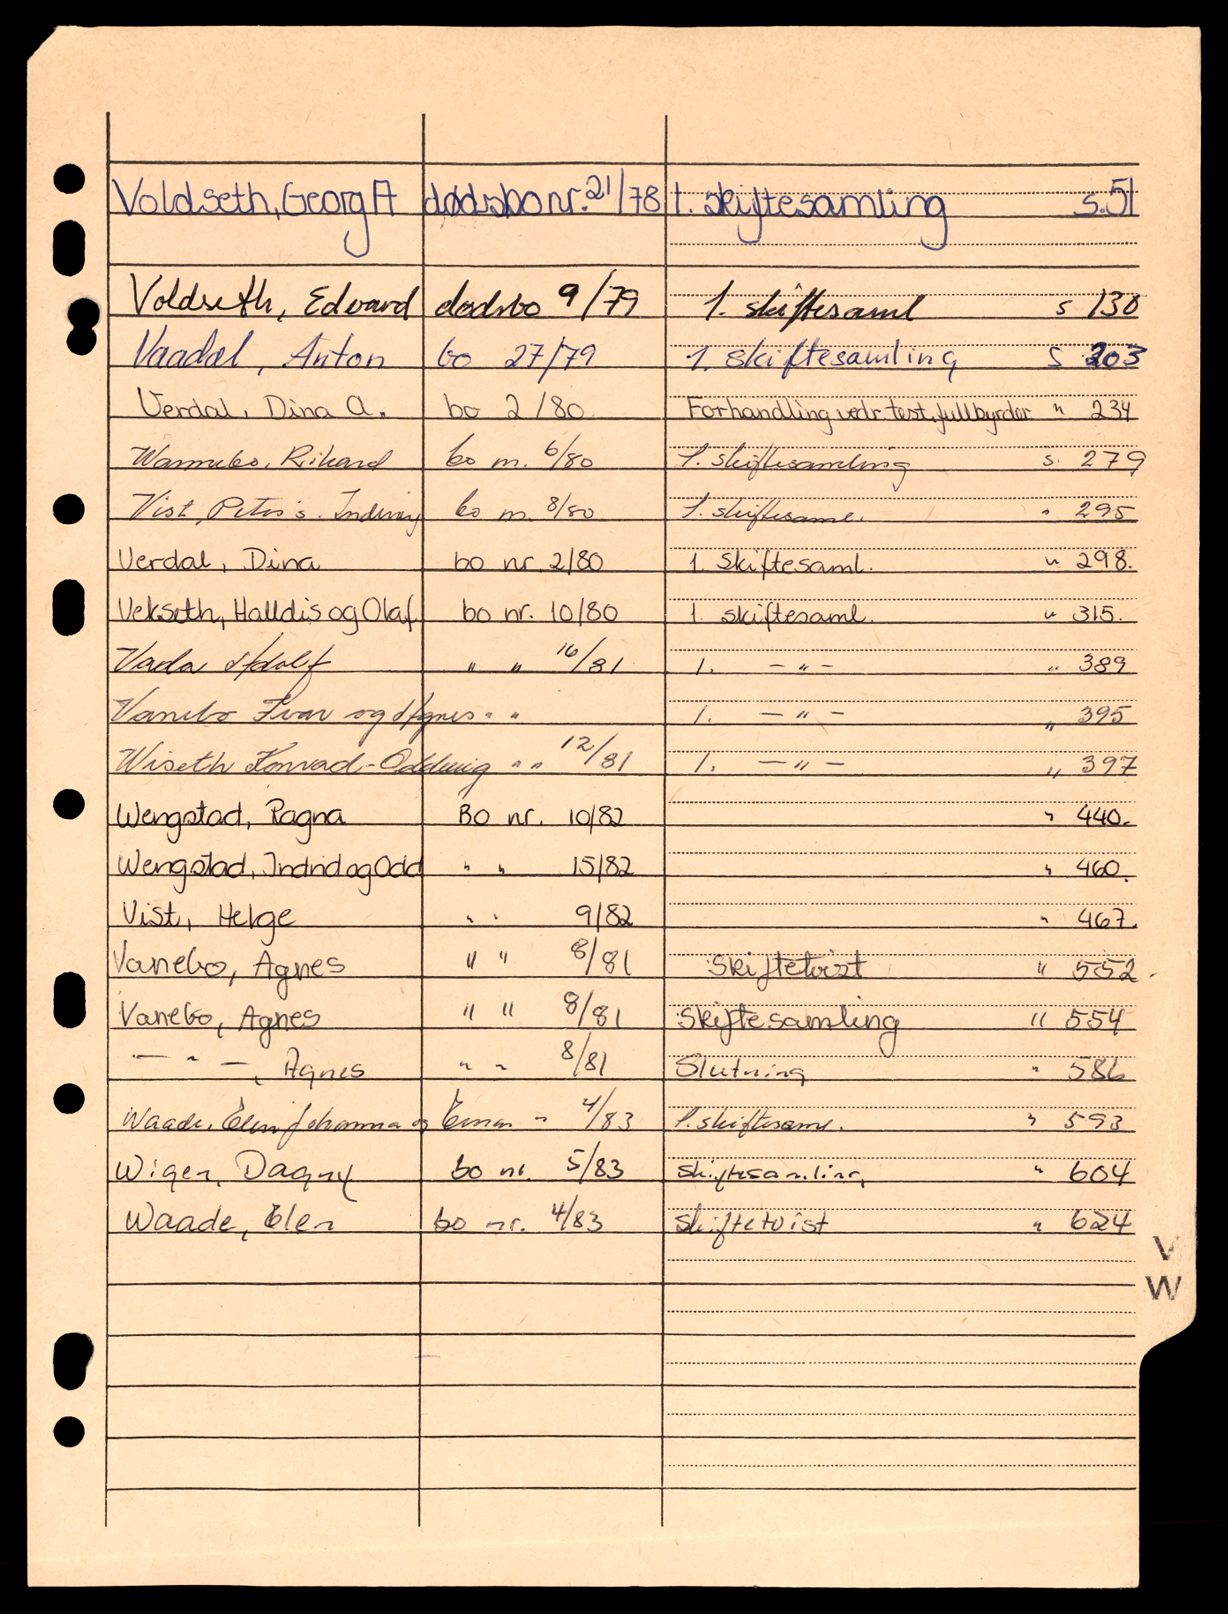 Voldseth, Georg A dødsbo nr. 21/78 1. skiftesamling s. 51
Voldseth, Edvard dødsbo 9/79 1. skiftesaml s 130
Vaadal, Anton bo 27/79 1. skiftesamling s 203
Verdal, Dina A. bo 2/80 Forhandling vedr. test. fullbyrder " 234
Wannebo, Rikard bo nr. 6/80 1. skiftesamling s. 279
Vist, Peter s. bo nr. 8/80 1. skiftesaml. " 295
Verdal, Dina bo nr. 2/80 1. skiftesaml. " 298.
Vekseth, Halldis og Olaf bo nr. 10/80 1. skiftesaml. " 315.
Vada Adolf " " 16/81 1. — " — " 389
Vanebo Ivar og Agnes " " 1. — " — " 395
Wiseth Konrad - Oddveig " " 12/81 1. — " — " 397
Wengstad, Ragna Bo nr. 10/82 " 440.
Wengstad, Indrid og Odd " " 15/82 " 460.
Vist, Helge " " 9/82 " 467.
Vanebo, Agnes " " 8/81 Skiftetvist " 552.
Vanebo, Agnes " " 8/81 Skiftesamling " 554
— " —, Agnes " " 8/81 Slutning " 586
Waade, Elen Johanna og Einar " 4/83 1. skiftesaml. " 593
Wigen, Dagny bo nr. 5/83 skiftesamling " 604
Waade, Elen bo nr. 4/83 skiftetvist " 624
V
W